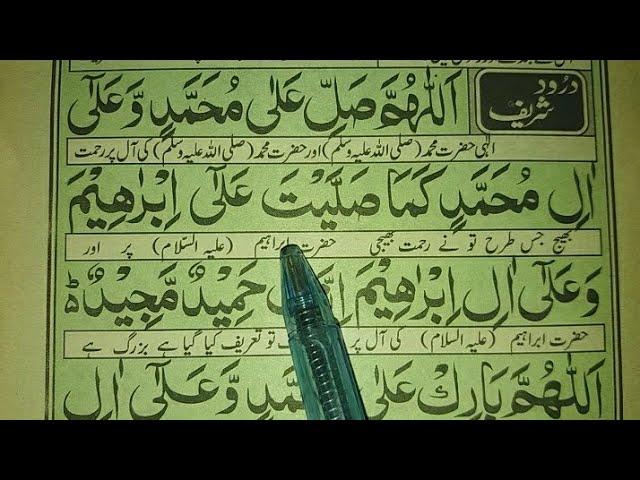 درود شریف
اَللّٰهُمَّ صَلِّ عَلٰى مُحَمَّدٍ وَّعَلٰٓى
الٰہی حضرت محمد (صلی اللہ علیہ وسلم) اور حضرت محمد (صلی اللہ علیہ وسلم) کی آل پر رحمت
اٰلِ مُحَمَّدٍ كَمَا صَلَّيْتَ عَلٰٓى اِبْرٰهِيْمَ
بھیج جس طرح تو نے رحمت بھیجی حضرت ابراہیم (علیہ السّلام) پر اور
وَعَلٰٓى اٰلِ اِبْرٰهِيْمَ حَمِيْدٌ مَّجِيْدٌ ؕ
حضرت ابراہیم (علیہ السلام) کی آل پر تو تعریف کیا گیا ہے بزرگ ہے
اَللّٰهُمَّ بَارِكْ عَلٰى وَّعَلٰٓى اٰلِ